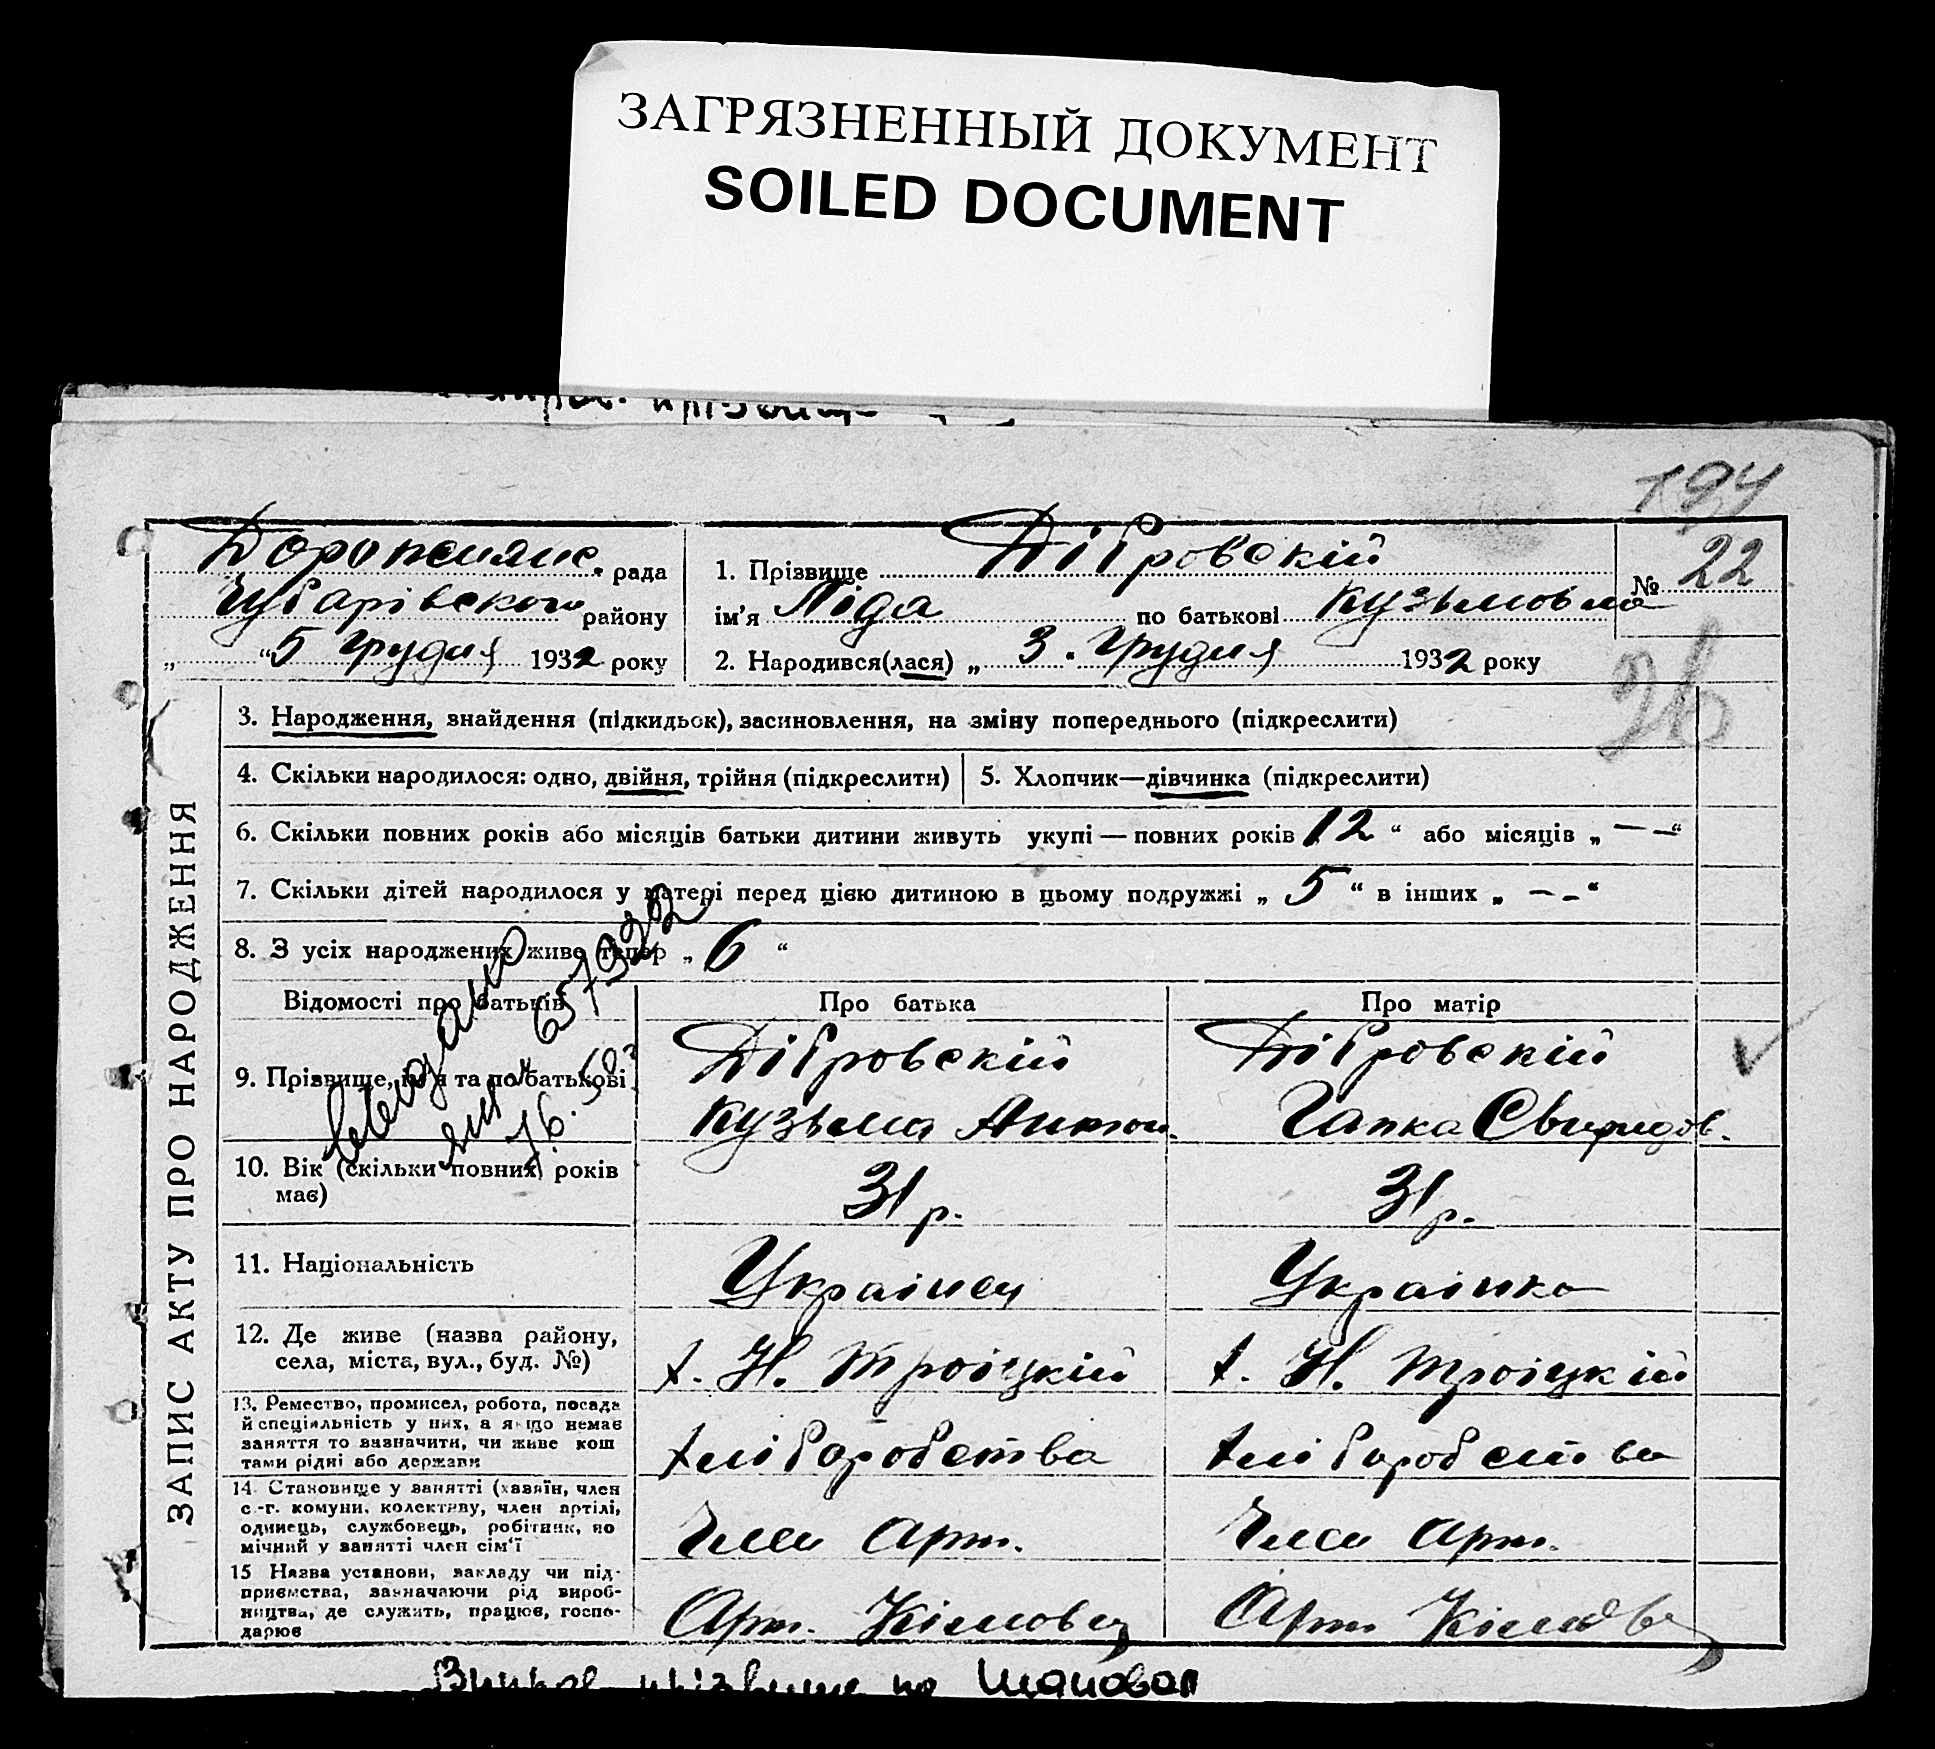 ЗАГРЯЗНЕННЫЙ ДОКУМЕНТ
SOILED DOCUMENT
194
рада
Чубарівского району
„ “ 5 грудня 1932 року
1. Прізвище Дібровскій
ім'я Ліда по батькові Кузьмовна
2. Народився(лася) „ 3 . грудня 1932 року
№ 22
ЗАПИС АКТУ ПРО НАРОДЖЕННЯ
3. Народження, знайдення (підкидьок), засиновлення, на зміну попереднього (підкреслити)
4. Скільки народилося: одно, двійня, трійня (підкреслити)
5. Хлопчик—дівчинка (підкреслити)
6. Скільки повних років або місяців батьки дитини живуть укупі — повних років 12 “ або місяців „ — —“
7. Скільки дітей народилося у матері перед цією дитиною в цьому подружжі „ 5 “ в інших „ — – “
8. З усіх народжених живе тепер „ 6 “
Відомості про батьків
Про батька
Про матір
9. Прізвище, ім'я та по батькові
Дібровскій
Кузьма Антон.
Дібровскій
Гапка Свиридов.
10. Вік (скільки повних років
має)
31 р.
31 р.
11. Національність
Українец
Українка
12. Де живе (назва району,
села, міста, вул., буд. №)
х. Н. Троіцкій
х. Н. Троіцкій
13. Ремество, промисел, робота, посада
й спеціяльність у них, а якщо немає
заняття то зазначити, чи живе кош
тами рідні або держави
хліборобства
хліборобства
14. Становище у занятті (хазяїн, член
с.-г. комуни, колективу, член артілі,
одинець, службовець, робітник, по
мічний у занятті член сім'ї
Член Арт.
Член Арт.
15 Назва установи, закладу чи під-
приємства, зазначаючи рід вироб-
ництва, де служить, працює, госпо-
дарює
Арт.
Арт.
прізвище на Шаповал